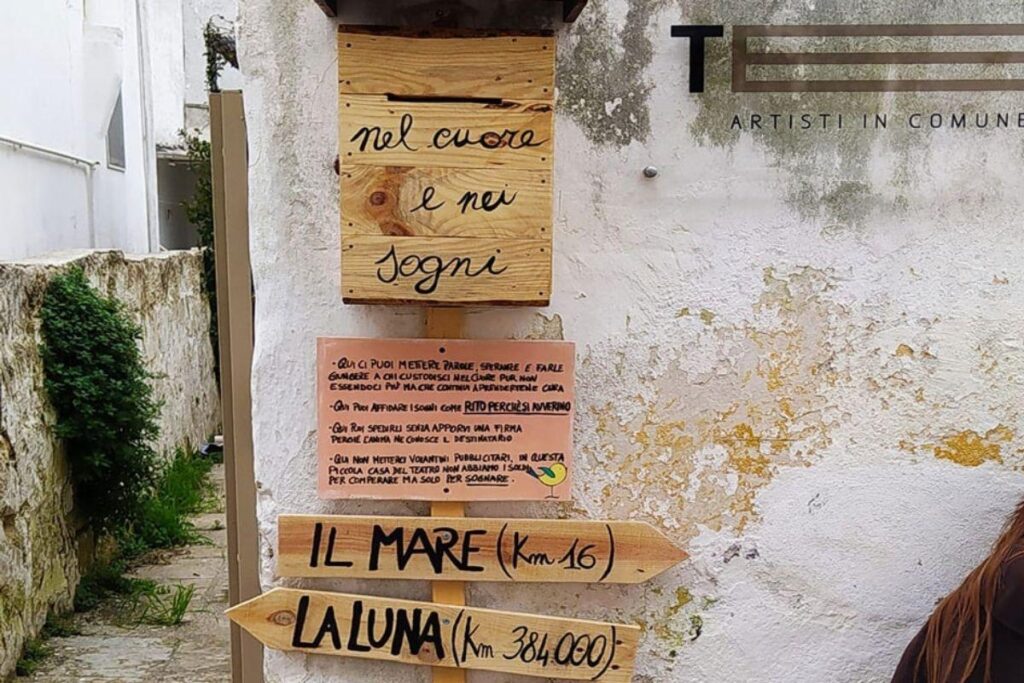 T
ARTISTI IN COMUNE
nel cuore
e nei
sogni
- QUI CI PUOI METTERE PAROLE, SPERANZE E FARLE
GIUNGERE A CHI CUSTODISCI NEL CUORE PUR NON
ESSENDOCI PIÙ MA CHE CONTINUI A PRENDERTENE CURA
- QUI PUOI AFFIDARE I SOGNI COME RITO PERCHÈ SI AVVERINO
- QUI PUOI SPEDIRLI SENZA APPORVI UNA FIRMA
PERCHÈ L'ANIMA NE CONOSCE IL DESTINATARIO
- QUI NON METTERCI VOLANTINI PUBBLICITARI, IN QUESTA
PICCOLA CASA DEL TEATRO NON ABBIAMO I SOLDI
PER COMPERARE MA SOLO PER SOGNARE.
IL MARE (Km 16)
LA LUNA (Km 384.000)